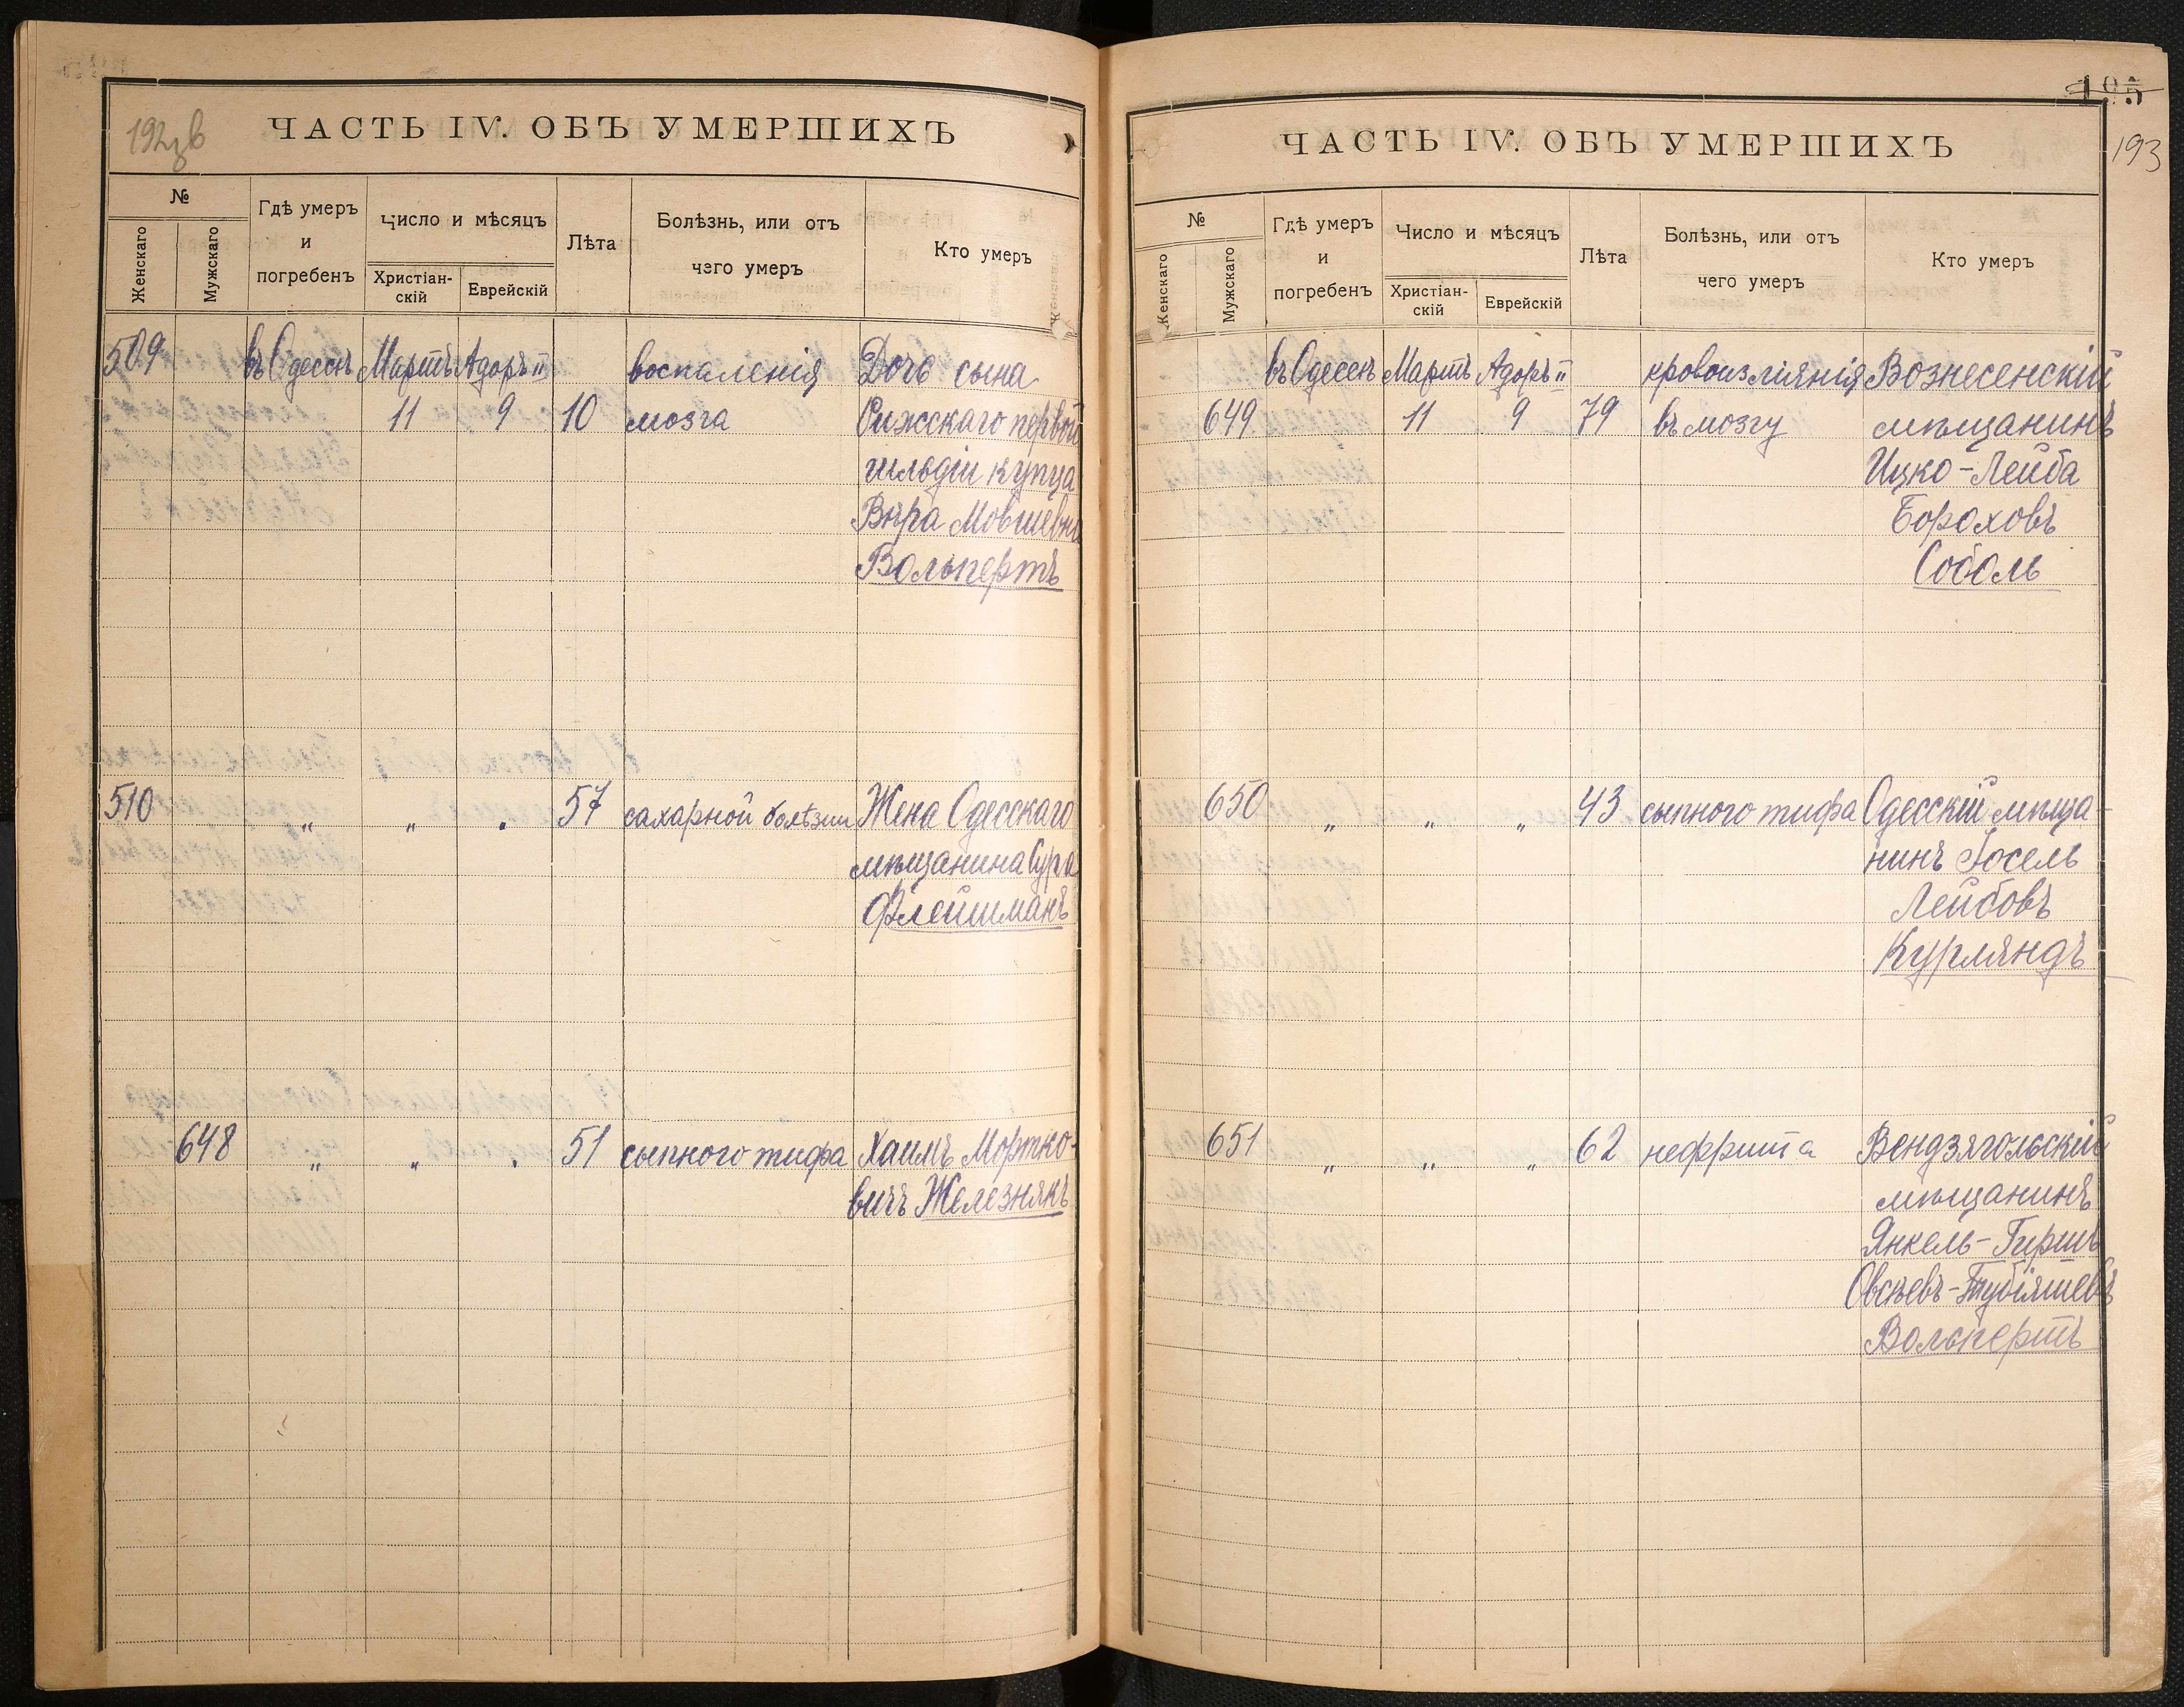 192 об
ЧАСТЬ IV. ОБЪ УМЕРШИХЪ
№
Женскаго
Мужскаго
Гдѣ умеръ
и
погребенъ
Число и мѣсяцъ
Христіан-
скій
Еврейскій
Лѣта
Болѣзнь, или отъ
чего умеръ
Кто умеръ
509 въ Одессѣ Мартъ Адоръ II воспаленія Дочь сына
11 9 10 мозга Рижскаго первой
гильдіи купца
Вѣра Мовшевна
Вольпертъ
510 „ „ . 57 сахарной болѣзни Жена Одесскаго
мѣщанина Сура
Флейшманъ
648 „ „ . 51 сыпного тифа Хаимъ Мортко-
вичъ Железнякъ
195
193
ЧАСТЬ IV. ОБЪ УМЕРШИХЪ
№
Женскаго
Мужскаго
Гдѣ умеръ
и
погребенъ
Число и мѣсяцъ
Христіан-
скій
Еврейскій
Лѣта
Болѣзнь, или отъ
чего умеръ
Кто умеръ
въ Одессѣ Мартъ Адоръ II кровоизліянія Вознесенскій
649 11 9 79 въ мозгу мѣщанинъ
Ицко-Лейба
Бороховъ
Соболь
650 „ „ „ 43 сыпного тифа Одесскій мѣща-
нинъ Іосель
Лейбовъ
Курляндъ
651 „ „ „ 62 нефрита Вендзягольскій
мѣщанинъ
Янкель-Гиршъ
Овсѣевъ-Тубіяшевъ
Вольпертъ